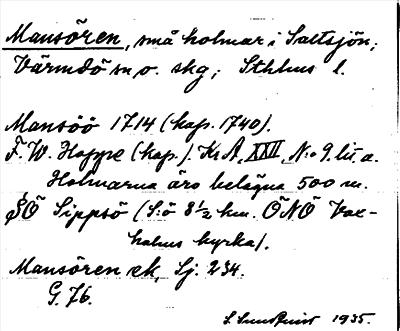 Mansören, små holmar i Saltsjön;
Värmdö sn o. skg; Sthlms l.
Mansöö 1714 (kap. 1740).
F. W. Hoppe (kap.). Kr A, XXII, N:o 9 lit. a.
Holmarna äro belägna 500 m.
SÖ Sippsö (S:ö 8 1/2 km. ÖNÖ Vax-
holms kyrka).
Mansören ek, Sj. 234.
G. 76.
S. Sundquist 1935.